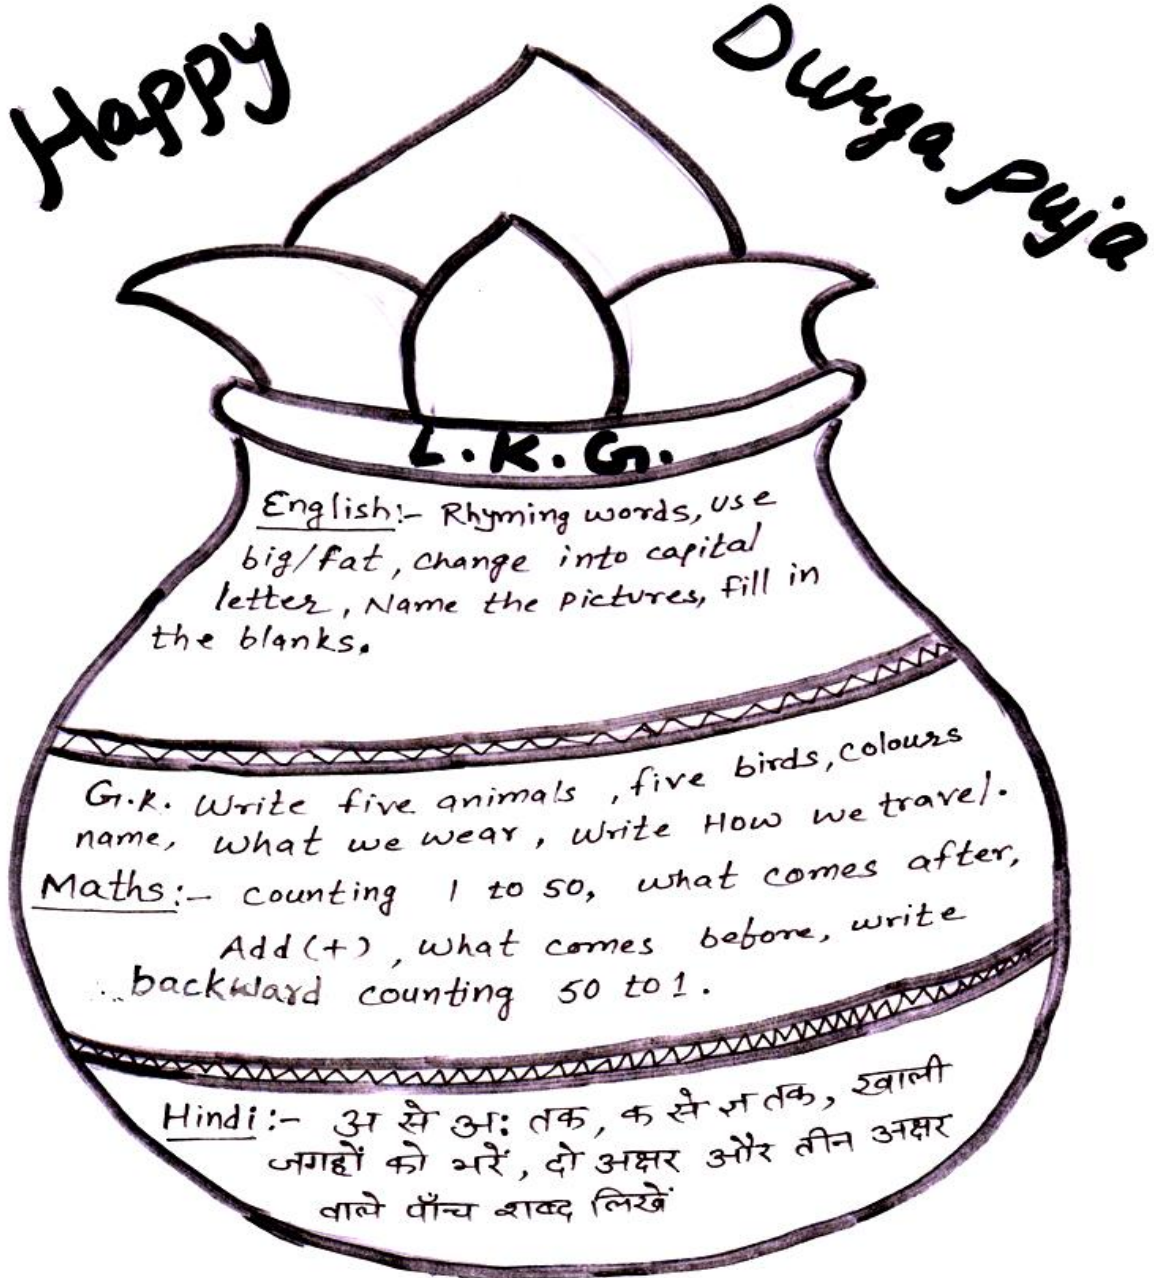 Happy Durga puja
L.K.G.
English:- Rhyming words, use
big/fat, change into capital
letter, Name the pictures, fill in
the blanks.
G.K. Write five animals, five birds, colours
name, what we wear, write How we travel.
Maths:- counting 1 to 50, what comes after,
Add (+), what comes before, write
backward counting 50 to 1.
Hindi:- अ से अः तक, क से ज्ञ तक, खाली
जगहों को भरें, दो अक्षर और तीन अक्षर
वाले पाँच शब्द लिखें